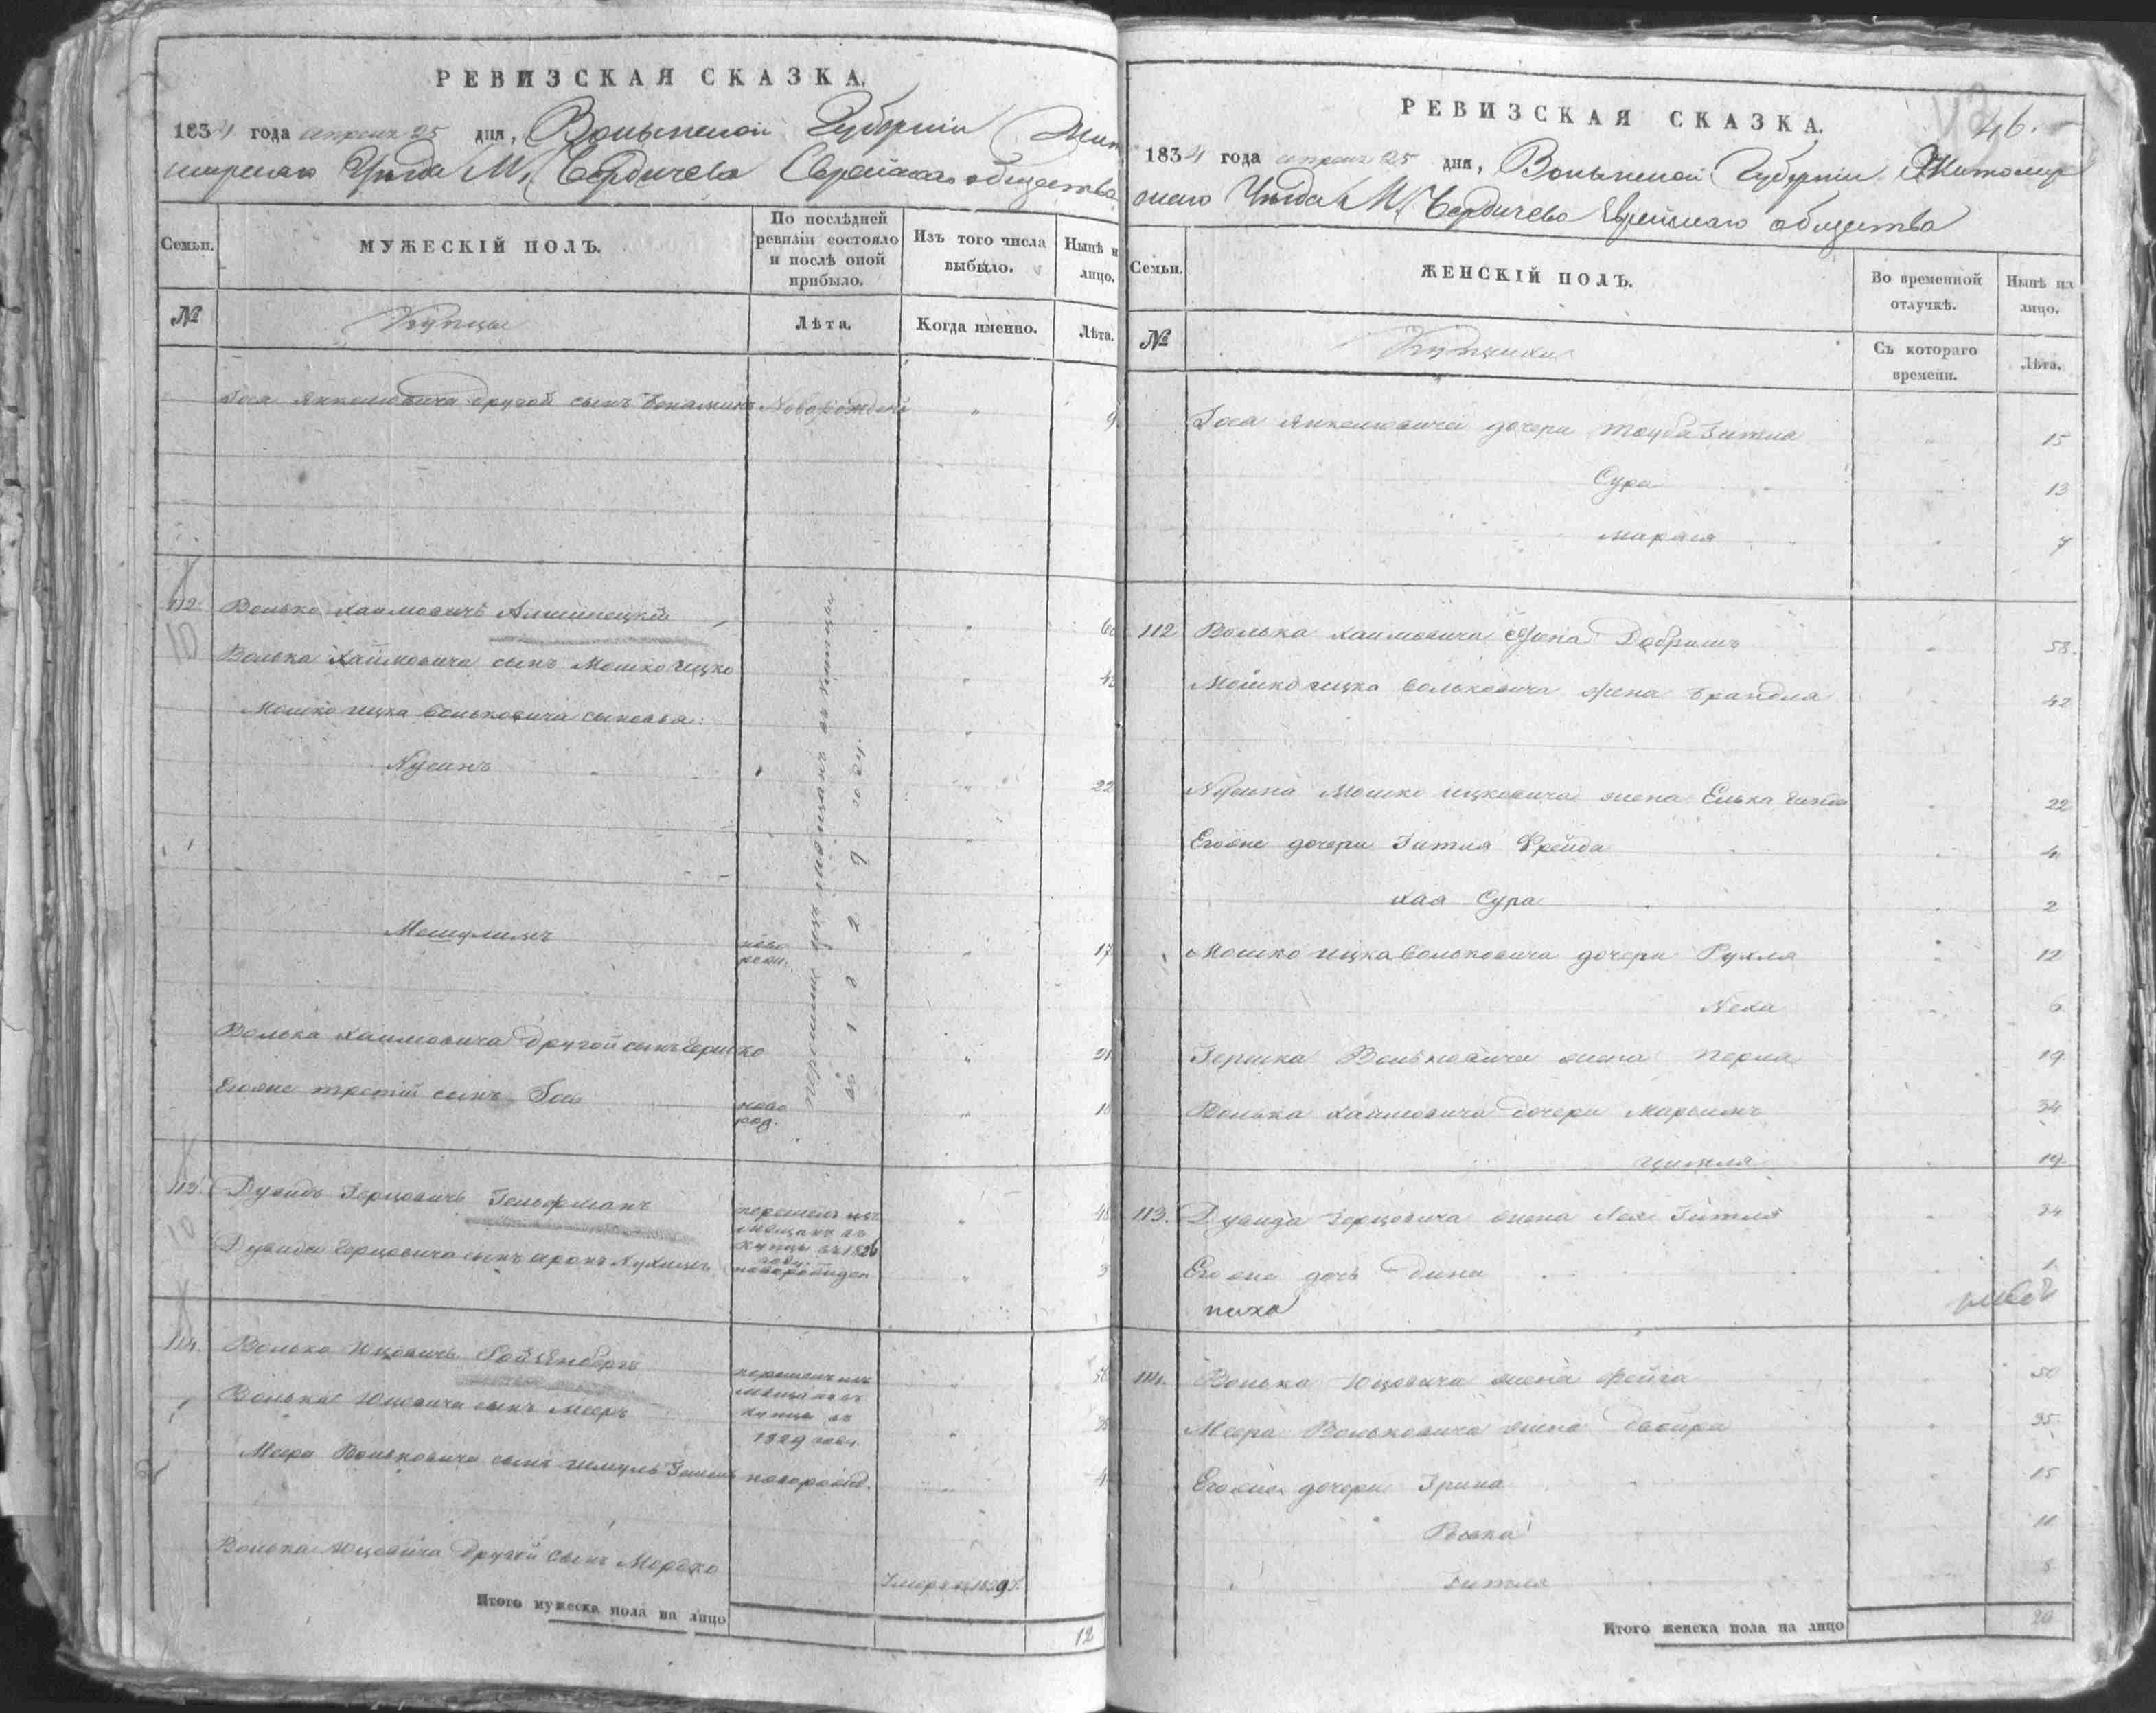 РЕВИЗСКАЯ СКАЗКА.
1834 года апреля 25 дня, Волынской Губерніи Жит
омирскаго Уѣзда М. Бердичева Еврейскаго общества
Семьи.
МУЖЕСКІЙ ПОЛЪ.
По послѣдней ревизіи состояло и послѣ оной прибыло.
Изъ того числа выбыло.
Нынѣ н лицо.
№
Купцы
Лѣта.
Когда именно.
Лѣта.
Іося Янкелювича другой сынъ Беніаминъ Новорожден " 9
112. Волько Хаимовичъ " 60
10
Волька Хаймовича сынъ Мошко Ицко " 42
Мошко Ицка Вольковича сыновья: "
Нусинъ " 22
Мошулимъ ново рож. " 17
Волька Хаимовича Другой сынъ Гершко " 21
Егоже третій сынъ Іось ново род. " 18
перешли изъ мещанъ въ купцы
въ 1829 году.
113. Дувидъ Герцовичъ Гельфманъ перешелъ изъ мещанъ въ купцы въ 1826 году " 48
10
Дувида Герцовича сынъ Аронъ Нухимъ новорожден " 3
114. Волько Юцовичъ Ройзенбергъ перешелъ изъ мещанъ въ купцы въ 1829 году "
Волька Юцовича сынъ Мееръ "
Меера Вольковича сынъ Шмуль новорожд. 4
Волька Юцовича Другой Сынъ Мордко Умеръ въ 1829 г.
Итого мужеска пола на лицо 12
46.
РЕВИЗСКАЯ СКАЗКА.
1834 года апреля 25 дня, Волынской Губерніи Житомир
скаго Уѣзда М. Бердичева Еврейскаго общества
Семьи.
ЖЕНСКІЙ ПОЛЪ.
Во временной отлучкѣ.
Нынѣ на лицо.
№
Купчихи
Съ котораго времени.
Лѣта.
Іося Янкелювича дочери Тауба Гитля 15
Сура 13
Марася 7
112 Волька Хаимовича Жена Добришъ 58.
Мошко Ицка Вольковича жена Брандля 42
Нусина Мошко Ицковича жена Элька 22
Егоже дочери Гитля Фрейда 4
Хая Сура 2
Мошко Ицка Вольковича дочери Рухля 12
Неха 6
Гершка Вольковича жена Перля 19
Волька Хаимовича дочери Марьимъ 34
Цитля 19
113. Дувида Герцовича жена Лея Гитля 34
Его же дочь Дина 1
114. Волька Юцовича жена Фейга 50
Меера Вольковича жена Двойра 35.
Его же дочери Грина 15
11
Гитля 8
Итого женска пола на лицо 20